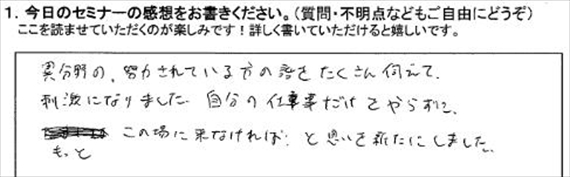 1. 今日のセミナーの感想をお書きください。(質問・不明点などもご自由にどうぞ)
ここを読ませていただくのが楽しみです!詳しく書いていただけると嬉しいです。
異分野の、努力されている方の話をたくさん伺えて、
刺激になりました。自分の仕事だけをやらずに、
もっと この場に来なければ、と思いを新たにしました。